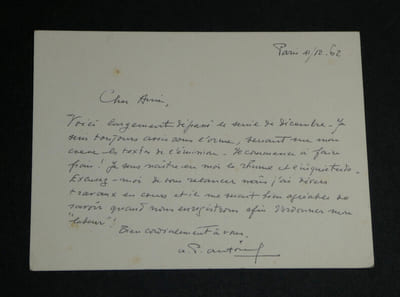 Paris 11/12.62
Cher Ami,
Voici largement dépassé le de décembre. Je
suis toujours assis sous l'orme, serrant sur mon
cœur les textes de l'émission. Je commence à faire
froid! Je sens naître en moi le rhume et l'inquiétude.
Excusez-moi de vous relancer mais j'ai divers
travaux en cours et il me serait bien agréable de
savoir quand nous enregistrons afin d'ordonner mon
"labeur"!
Bien cordialement à vous.